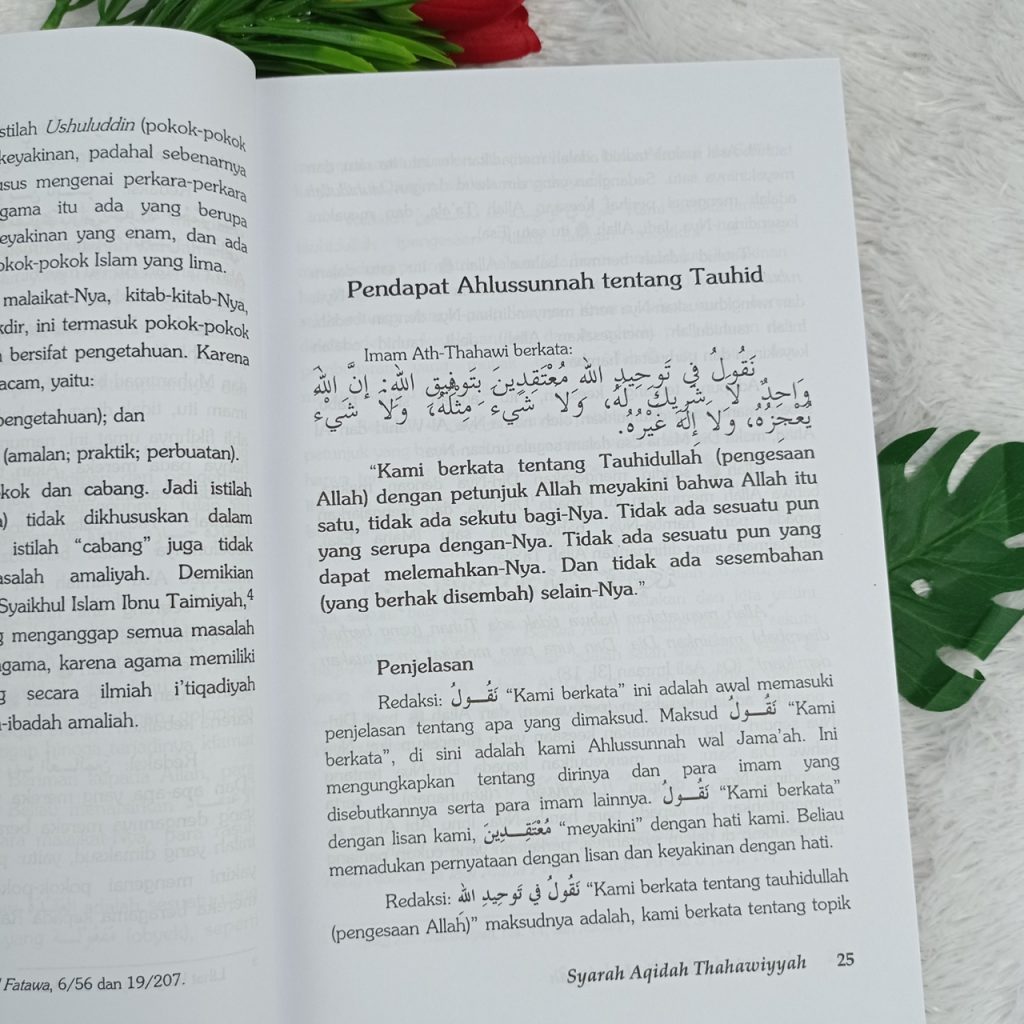 stilah Ushuluddin (pokok-pokok
keyakinan, padahal sebenarnya
usus mengenai perkara-perkara
gama itu ada yang berupa
eyakinan yang enam, dan ada
okok-pokok Islam yang lima.
malaikat-Nya, kitab-kitab-Nya,
kdir, ini termasuk pokok-pokok
bersifat pengetahuan. Karena
acam, yaitu:
pengetahuan); dan
(amalan; praktik; perbuatan).
kok dan cabang. Jadi istilah
) tidak dikhususkan dalam
istilah “cabang” juga tidak
asalah amaliyah. Demikian
Syaikhul Islam Ibnu Taimiyah,⁴
g menganggap semua masalah
gama, karena agama memiliki
g secara ilmiah i’tiqadiyah
-ibadah amaliah.
Fatawa, 6/56 dan 19/207.
Pendapat Ahlussunnah tentang Tauhid
Imam Ath-Thahawi berkata:
نَقُولُ فِي تَوحِيدِ اللهِ مُعْتَقِدِينَ بِتَوفِيقِ اللهِ: إِنَّ اللهَ
وَاحِدٌ لَا شَرِيكَ لَهُ، وَلَا شَيْءَ مِثْلُهُ، وَلَا شَيْءَ
يُعْجِزُهُ، وَلَا إِلَهَ غَيْرُهُ.
“Kami berkata tentang Tauhidullah (pengesaan
Allah) dengan petunjuk Allah meyakini bahwa Allah itu
satu, tidak ada sekutu bagi-Nya. Tidak ada sesuatu pun
yang serupa dengan-Nya. Tidak ada sesuatu pun yang
dapat melemahkan-Nya. Dan tidak ada sesembahan
(yang berhak disembah) selain-Nya.”
Penjelasan
Redaksi: نَقُولُ “Kami berkata” ini adalah awal memasuki
penjelasan tentang apa yang dimaksud. Maksud نَقُولُ “Kami
berkata”, di sini adalah kami Ahlussunnah wal Jama’ah. Ini
mengungkapkan tentang dirinya dan para imam yang
disebutkannya serta para imam lainnya. نَقُولُ “Kami berkata”
dengan lisan kami, مُعْتَقِدِينَ “meyakini” dengan hati kami. Beliau
memadukan pernyataan dengan lisan dan keyakinan dengan hati.
Redaksi: نَقُولُ فِي تَوحِيدِ اللهِ “Kami berkata tentang tauhidullah
(pengesaan Allah)” maksudnya adalah, kami berkata tentang topik
Syarah Aqidah Thahawiyyah 25